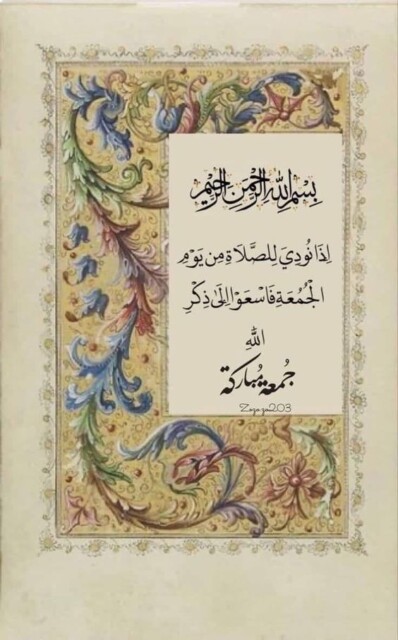 بِسْمِ اللهِ الرَّحْمٰنِ الرَّحِيْمِ
اِذَا نُودِيَ لِلصَّلَاةِ مِن يَوْمِ
الْجُمُعَةِ فَاسْعَوْا اِلَىٰ ذِكْرِ
اللهِ
جُمعة مُباركة
Zozaza203